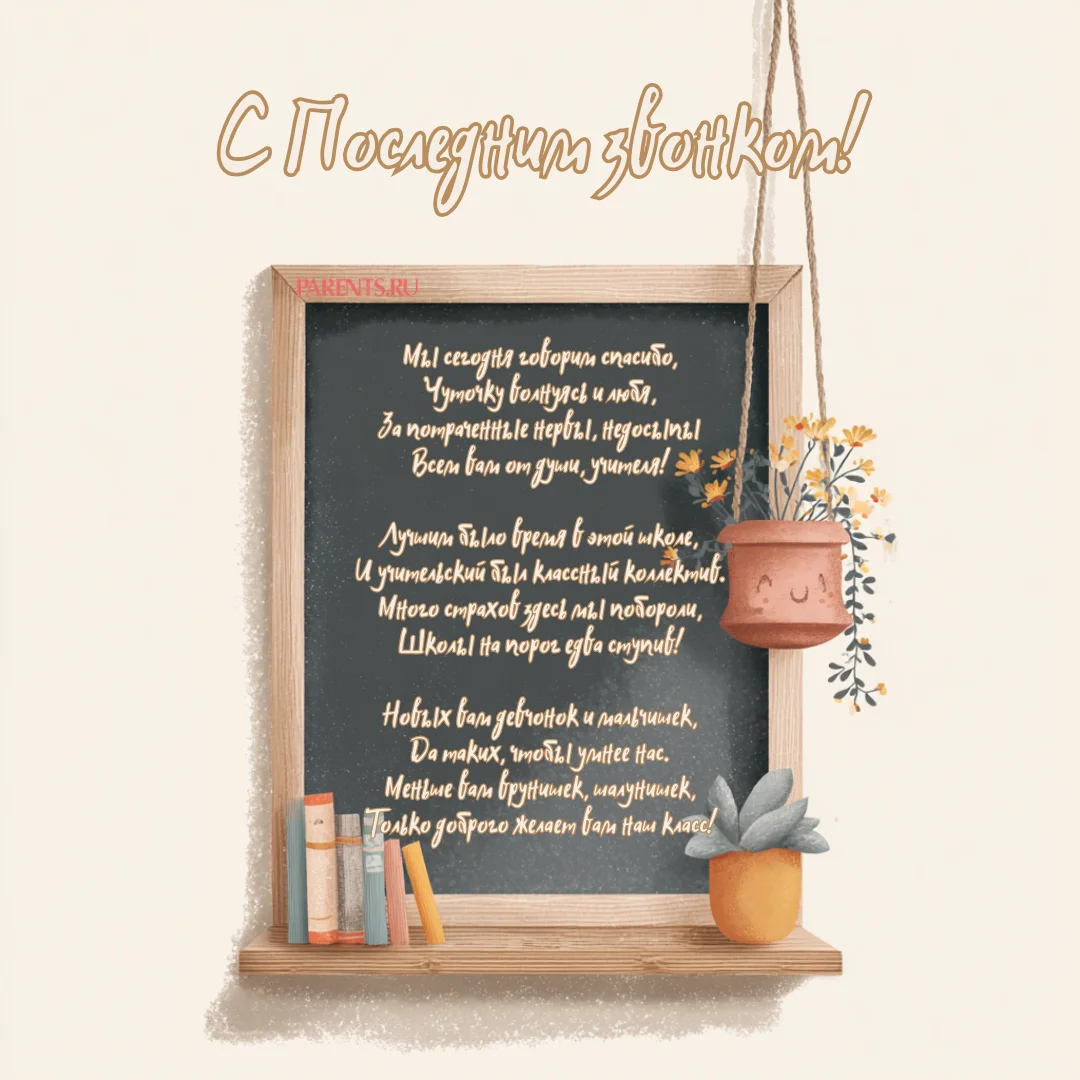 С Последним звонком!
PARENTS.RU
Мы сегодня говорим спасибо,
Чуточку волнуясь и любя,
За потраченные нервы, недосыпы
Всем вам от души, учителя!
Лучшим было время в этой школе,
И учительский был классный коллектив.
Много страхов здесь мы побороли,
Школы на порог едва ступив!
Новых вам девчонок и мальчишек,
Да таких, чтобы умнее нас.
Меньше вам врунишек, шалунишек,
Только доброго желает вам наш класс!